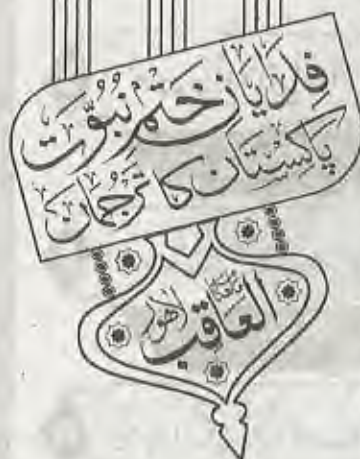 فِدایانِ ختمِ نبوّت
پاکستان کا ترجمان
العاقب لاہور